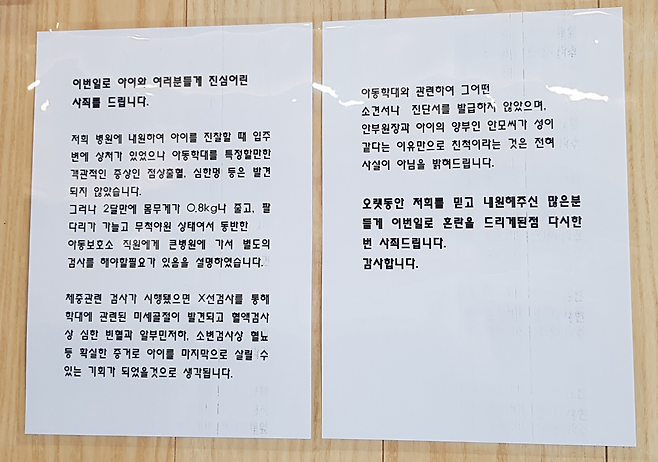 이번일로 아이와 여러분들게 진심어린
사죄를 드립니다.
저희 병원에 내원하여 아이를 진찰할 때 입주
변에 상처가 있었으나 아동학대를 특정할만한
객관적인 증상인 점상출혈, 심한멍 등은 발견
되지 않았습니다.
그러나 2달만에 몸무게가 0.8kg나 줄고, 팔
다리가 가늘고 무척야윈 상태여서 동반한
아동보호소 직원에게 큰병원에 가서 별도의
검사를 해야할필요가 있음을 설명하였습니다.
체중관련 검사가 시행됐으면 X선검사를 통해
학대에 관련된 미세골절이 발견되고 혈액검사
상 심한 빈혈과 일부민저하, 소변검사상 혈뇨
등 확실한 증거로 아이를 마지막으로 살릴 수
있는 기회가 되었을것으로 생각됩니다.
아동학대와 관련하여 그어떤
소견서나 진단서를 발급하지 않았으며,
안부원장과 아이의 양부인 안모씨가 성이
같다는 이유만으로 친척이라는 것은 전혀
사실이 아님을 밝혀드립니다.
오랫동안 저희를 믿고 내원해주신 많은분
들게 이번일로 혼란을 드리게된점 다시한
번 사죄드립니다.
감사합니다.